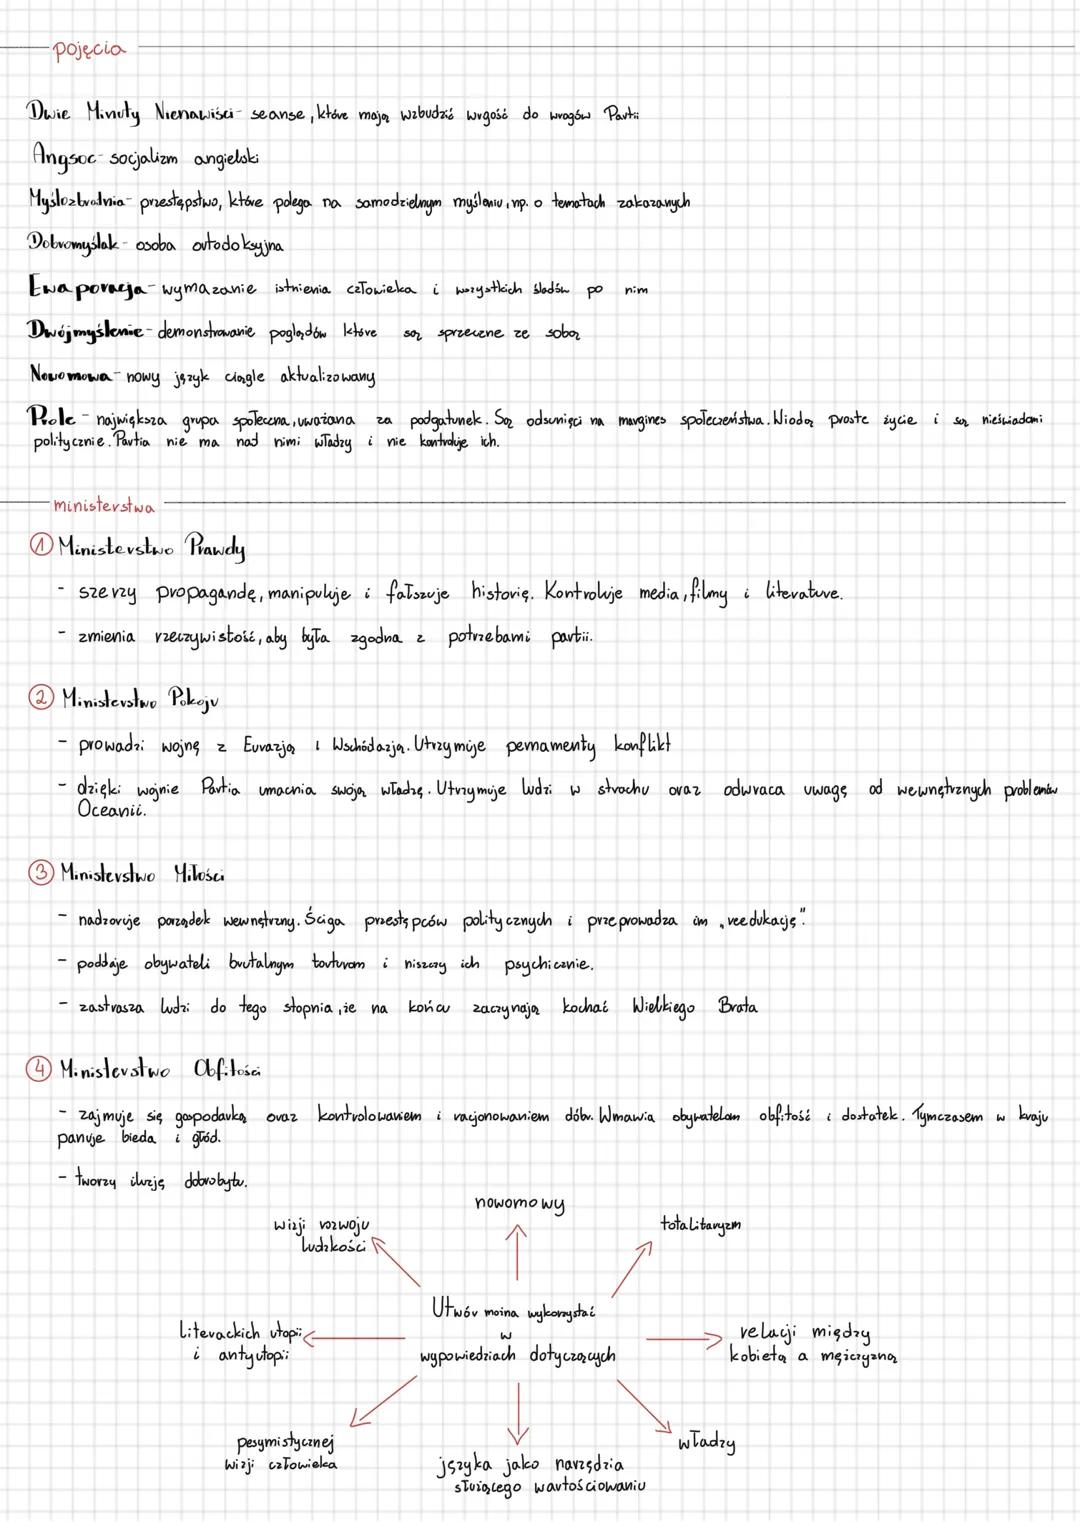 pojęcia
Dwie Minuty Nienawiści - seanse, które mają wzbudzić wrgość do wrogów Partii
Angsoc - socjalizm angielski
Myślozbrodnia - przestępstwo, które polega na samodzielnym myśleniu, np. o tematach zakazanych
Dobromyślak - osoba ortodoksyjna
Ewaporacja - wymazanie istnienia człowieka i wszystkich śladów po nim
Dwójmyślenie - demonstrowanie poglądów które są sprzeczne ze sobą
Nowomowa - nowy język ciągle aktualizowany
Prole - największa grupa społeczna, uważana za podgatunek. Są odsunięci na margines społeczeństwa. Wiodą proste życie i są nieświadomi
politycznie. Partia nie ma nad nimi władzy i nie kontroluje ich.
ministerstwa
1 Ministerstwo Prawdy
- szerzy propagandę, manipuluje i fałszuje historię. Kontroluje media, filmy i literature.
- zmienia rzeczywistość, aby była zgodna z potrzebami partii.
2 Ministerstwo Pokoju
- prowadzi wojnę z Eurazją i Wschódazją. Utrzymuje pernamenty konflikt
- dzięki wojnie Partia umacnia swoją władzę. Utrzymuje ludzi w strachu oraz odwraca uwagę od wewnętrznych problemów
Oceanii.
3 Ministerstwo Miłości
- nadzoruje porządek wewnętrzny. Ściga przestępców politycznych i przeprowadza im „reedukację".
- poddaje obywateli brutalnym torturom i niszczy ich psychicznie.
- zastrasza ludzi do tego stopnia, że na końcu zaczynają kochać Wielkiego Brata
4 Ministerstwo Obfitości
- zajmuje się gospodarką oraz kontrolowaniem i racjonowaniem dóbr. Wmawia obywatelom obfitość i dostatek. Tymczasem w kraju
panuje bieda i głód.
- tworzy iluzję dobrobytu.
nowomowy
wizji rozwoju
ludzkości
totalitaryzm
Utwór można wykorzystać
w
wypowiedziach dotyczących
literackich utopii
i antyutopii
relacji między
kobietą a mężczyzną
pesymistycznej
wizji człowieka
języka jako narzędzia
służącego wartościowaniu
władzy